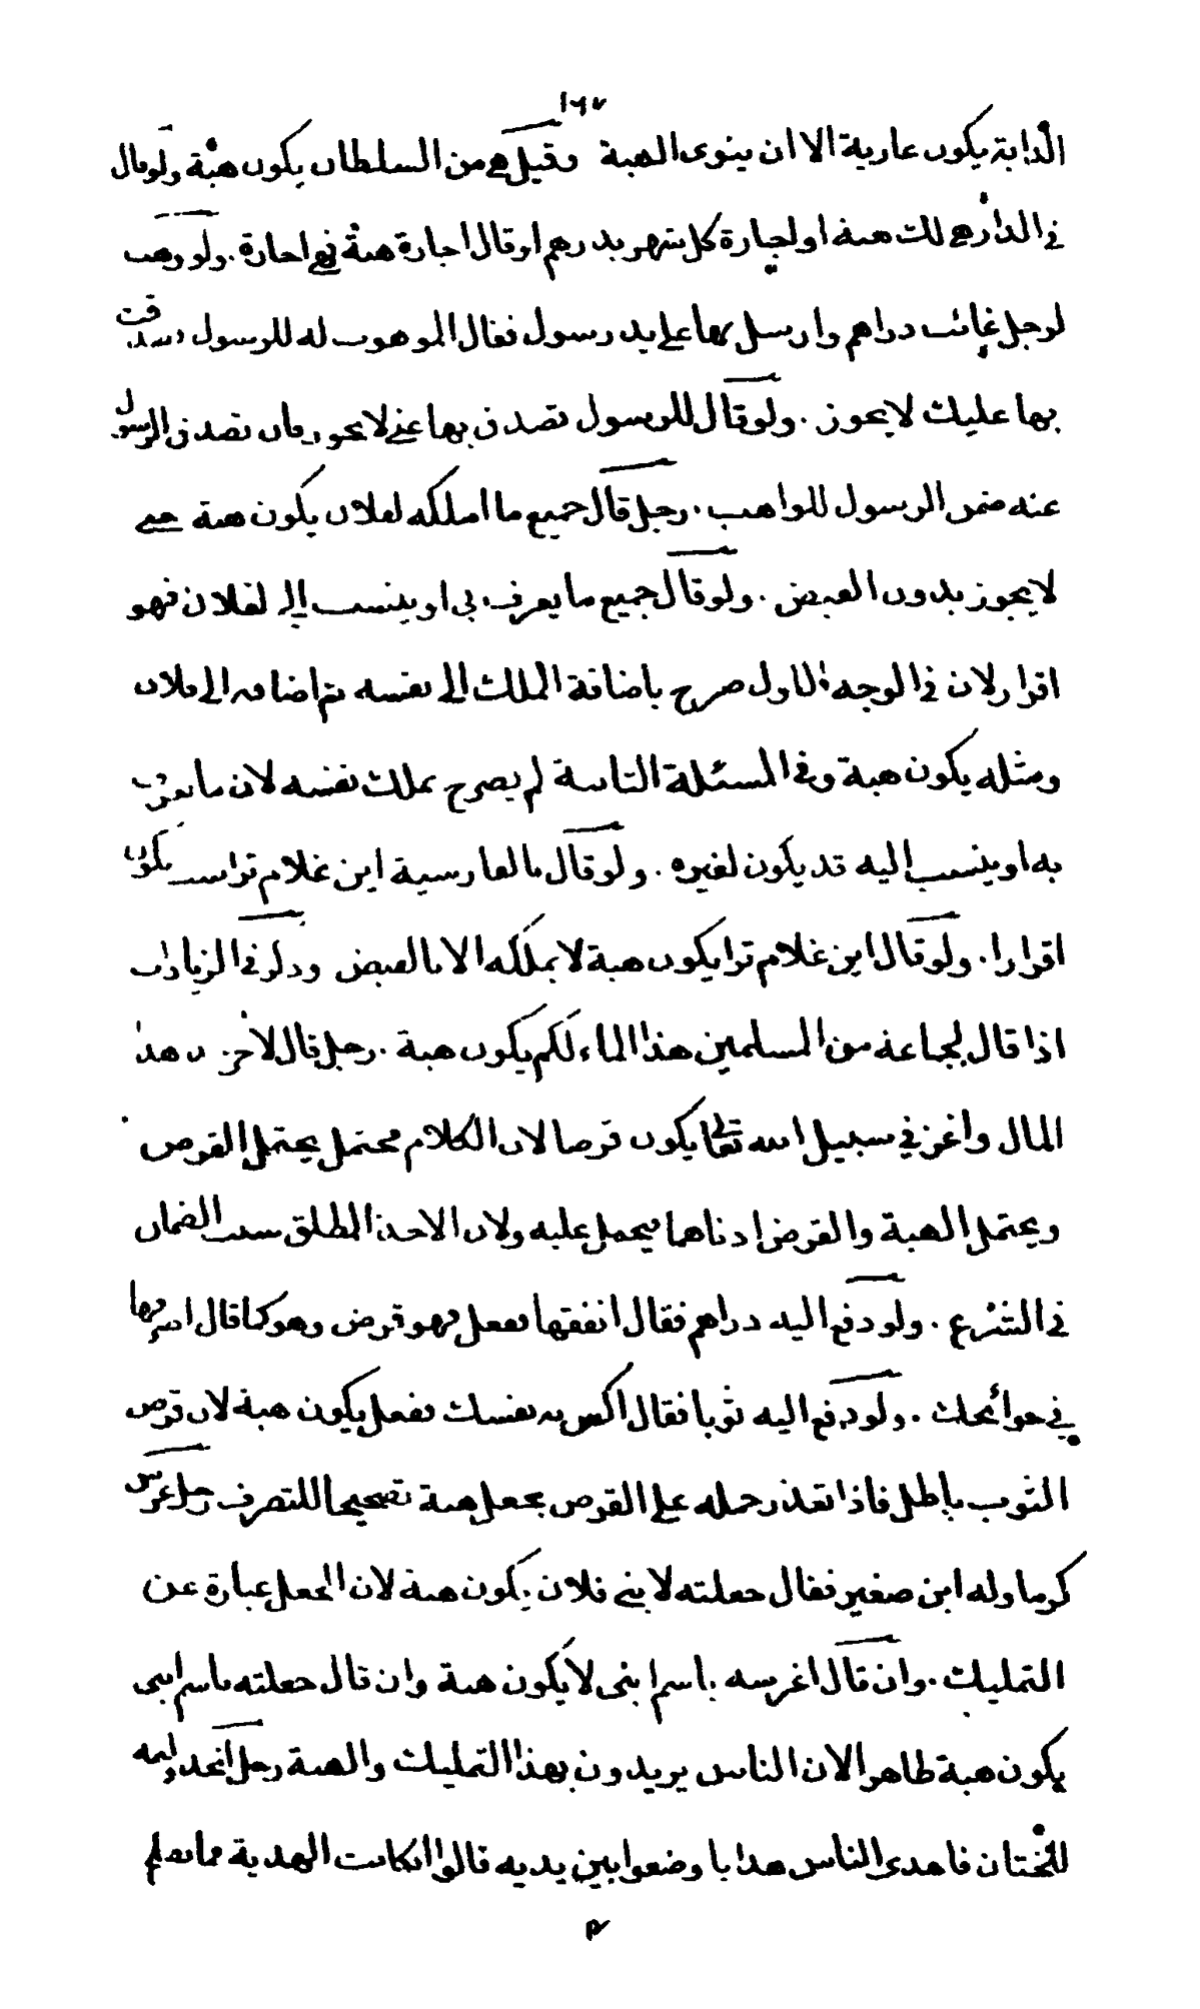 ١٦٧
الدابة يكون عارية الا ان ينوى الهبة وقيل هى من السلطان يكون هبة ولو قال
فى الدار هى لك هبة او اجارة كل شهر بدرهم او قال اجارة هبة فهى اجارة . ولو وهب
لرجل غائب دراهم وارسل بها على يد رسول فقال الموهوب له للرسول تصدقت
بها عليك لا يجوز . ولو قال للرسول تصدق بها عنى لا يجوز فان تصدق الرسول
عنه ضمن الرسول للواهب . رجل قال جميع ما املكه لفلان يكون هبة حتى
لا يجوز بدون القبض . ولو قال جميع ما يعرف بى او ينسب الى لفلان فهو
اقرار لان فى الوجه الاول صرح باضافة الملك الى نفسه ثم اضافه الى فلان
ومثله يكون هبة وفى المسئلة الثانية لم يصرح بملك نفسه لان ما يعرف
به او ينسب اليه قد يكون لغيره . ولو قال بالفارسية اين غلام تراست يكون
اقرارا . ولو قال اين غلام ترا يكون هبة لا يملكه الا بالقبض وذكر فى الزيادات
اذا قال لجماعة من المسلمين هذا الماء لكم يكون هبة . رجل قال لآخر هذا
المال واغز فى سبيل الله تعالى يكون قرضا لان الكلام محتمل يحتمل القرض
ويحتمل الهبة والقرض ادناهما فيحمل عليه ولان الاخذ المطلق سبب الضمان
فى الشرع . ولو دفع اليه دراهم فقال انفقها ففعل فهو قرض وهو كما قال اصرفها
فى حوائجك . ولو دفع اليه ثوبا فقال اكس به نفسك ففعل يكون هبة لان قرض
الثوب باطل فاذا تعذر حمله على القرض يجعل هبة تصحيحا للتصرف رجل غرس
كرما وله ابن صغير فقال جعلته لابنى فلان يكون هبة لان الجعل عبارة عن
التمليك . وان قال اغرسه باسم ابنى لا يكون هبة وان قال جعلته باسم ابنى
يكون هبة ظاهرا لان الناس يريدون بهذا التمليك والهبة رجل اتخذ وليمة
للختان فاهدى الناس هدايا وضعوا بين يديه قالوا ان كانت الهدية مما يصلح